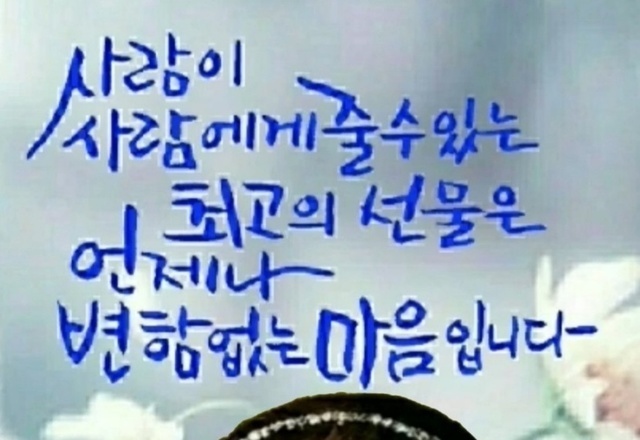 사람이
사람에게 줄 수 있는
최고의 선물은
언제나
변함없는 마음입니다